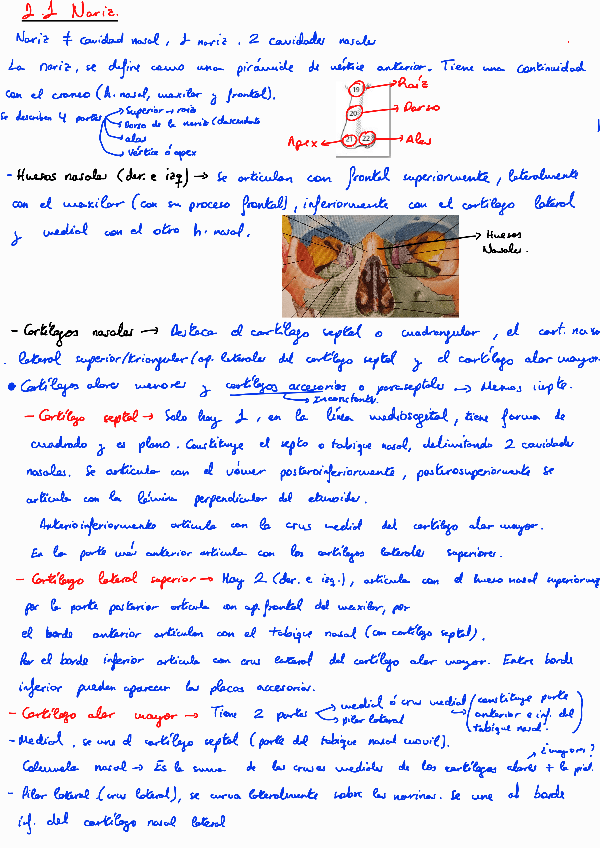 2.1 Nariz.
Nariz ≠ cavidad nasal, 1 nariz, 2 cavidades nasales
La nariz, se define como una pirámide de vértice anterior. Tiene una continuidad
con el craneo (h. nasal, maxilar y frontal).
Se describen 4 partes
Superior → raiz
Dorso de la nariz (descendente
alas
Vértice ó apex
19 Raíz
20 Dorso
Apex 21 22 Alas
- Huesos nasales (der. e izq) → Se articulan con frontal superiormente, lateralmente
con el maxilar (con su proceso frontal), inferiormente con el cartílago lateral
y medial con el otro h. nasal.
Huesos
Nasales.
- Cartílagos nasales → Destaca el cartílago septal o cuadrangular, el cart. nasa
lateral superior/triangular/ap. laterales del cartílago septal y el cartílago alar mayor.
• Cartílagos alares menores y cartílagos accesorios o paraseptales → Menos impte.
→ Inconstantes.
- Cartílago septal → Solo hay 1, en la línea mediosagital, tiene forma de
cuadrado y es plano. Constituye el septo o tabique nasal, delimitando 2 cavidades
nasales. Se articula con el vómer posteroinferiormente, posterosuperiormente se
articula con la lámina perpendicular del etmoides.
Anterioinferiormente articula con la crus medial del cartílago alar mayor.
En la parte más anterior articula con los cartílagos laterales superiores.
- Cartílago lateral superior → Hay 2 (der. e izq.), articula con el hueso nasal superiorme
por la parte posterior articula con ap. frontal del maxilar, por
el borde anterior articulan con el tabique nasal (con cartílago septal).
Por el borde inferior articula con crus lateral del cartílago alar mayor. Entre borde
inferior pueden aparecer las placas accesorias.
- Cartílago alar mayor → Tiene 2 partes
medial ó crus medial
pilar lateral
(constituye parte
anterior e inf. del
tabique nasal.)
- Medial, se une al cartílago septal (parte del tabique nasal movil).
¿mayores?
Columela nasal → Es la suma de las cruras mediales de los cartílagos alares + la piel.
- Pilar lateral (crus lateral), se curva lateralmente sobre las narinas. Se une al borde
inf. del cartílago nasal lateral